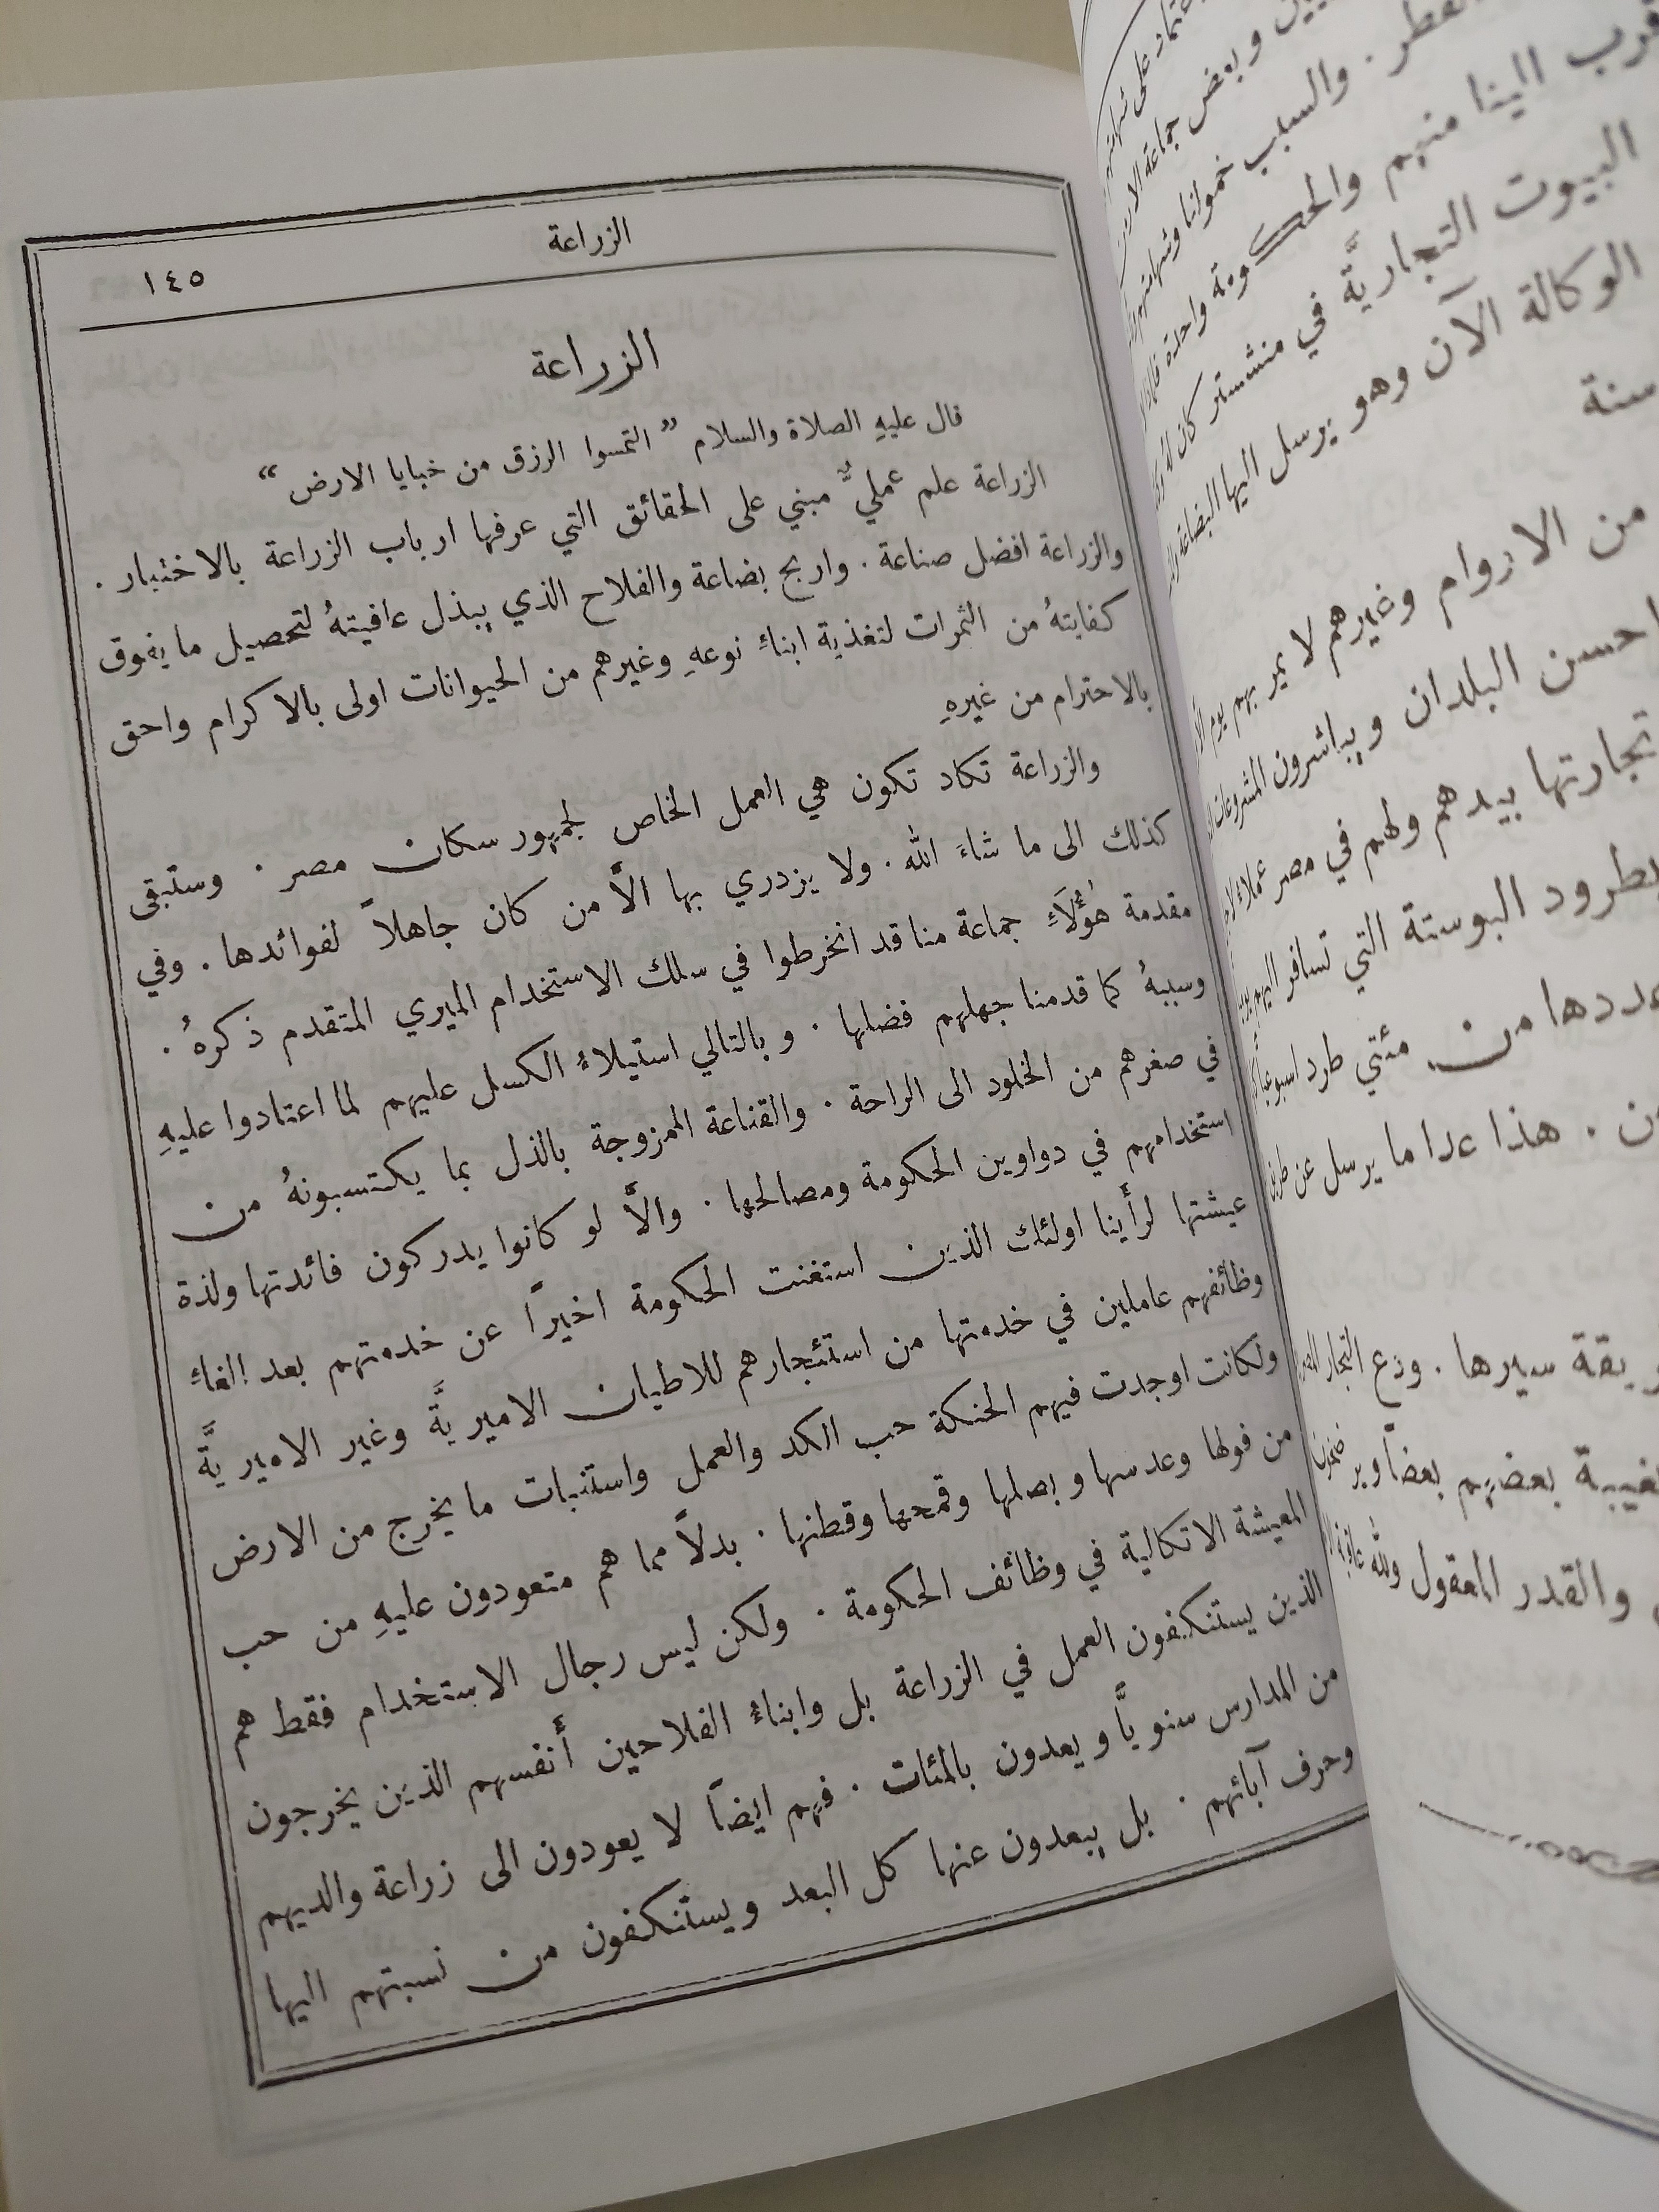 الزراعة
١٤٥
الزراعة
قال عليهِ الصلاة والسلام ” التمسوا الرزق من خبايا الارض “
الزراعة علم عمليٌّ مبني على الحقائق التي عرفها ارباب الزراعة بالاختبار .
والزراعة افضل صناعة . واربح بضاعة والفلاح الذي يبذل عافيتهُ لتحصيل ما يفوق
كفايتهُ من الثمرات لتغذية ابناء نوعهِ وغيرهم من الحيوانات اولى بالاكرام واحق
بالاحترام من غيرهِ
والزراعة تكاد تكون هي العمل الخاص لجمهور سكان مصر . وستبقى
كذلك الى ما شاءَ الله . ولا يزدري بها الاَّ من كان جاهلاً لفوائدها . وفي
مقدمة هٰؤُلاَءِ جماعة منا قد انخرطوا في سلك الاستخدام الميري المتقدم ذكرهُ .
وسببهُ كما قدمنا جهلهم فضلها . وبالتالي استيلاءُ الكسل عليهم لما اعتادوا عليهِ
في صغرهم من الخلود الى الراحة . والقناعة الممزوجة بالذل بما يكتسبونهُ من
استخدامهم في دواوين الحكومة ومصالحها . والاَّ لو كانوا يدركون فائدتها ولذة
عيشتها لرأَينا اولئك الذين استغنت الحكومة اخيراً عن خدمتهم بعد الغاءِ
وظائفهم عاملين في خدمتها من استئجارهم للاطيان الاميريَّة وغير الاميريَّة
ولكانت اوجدت فيهم الحنكة حب الكد والعمل واستنبات ما يخرج من الارض
من فولها وعدسها وبصلها وقمحها وقطنها . بدلاً مما هم متعودون عليهِ من حب
المعيشة الاتكالية في وظائف الحكومة . ولكن ليس رجال الاستخدام فقط هم
الذين يستنكفون العمل في الزراعة بل وابناءُ الفلاحين أَنفسهم الذين يخرجون
من المدارس سنويًّا ويعدون بالمئات . فهم ايضاً لا يعودون الى زراعة والديهم
وحرف آبائهم . بل يبعدون عنها كل البعد ويستنكفون من نسبتهم اليها
وبعض جماعة
والسبب خمولنا
الينا منهم والحكومة واحدة
البيوت التجاريَّة في منشستر كان
الوكالة الآن وهو يرسل اليها البضائع
سنة
من الاروام وغيرهم لا يمر بهم يوم
احسن البلدان ويباشرون المشروعات
تجارتها بيدهم ولهم في مصر عملاء
بطرود البوستة التي تسافر اليهم
عددها من مئتي طرد اسبوعيا
هذا عدا ما يرسل عن طريق
سيرها . ودع التجار
بعضهم بعضاً
والقدر المعقول ولله